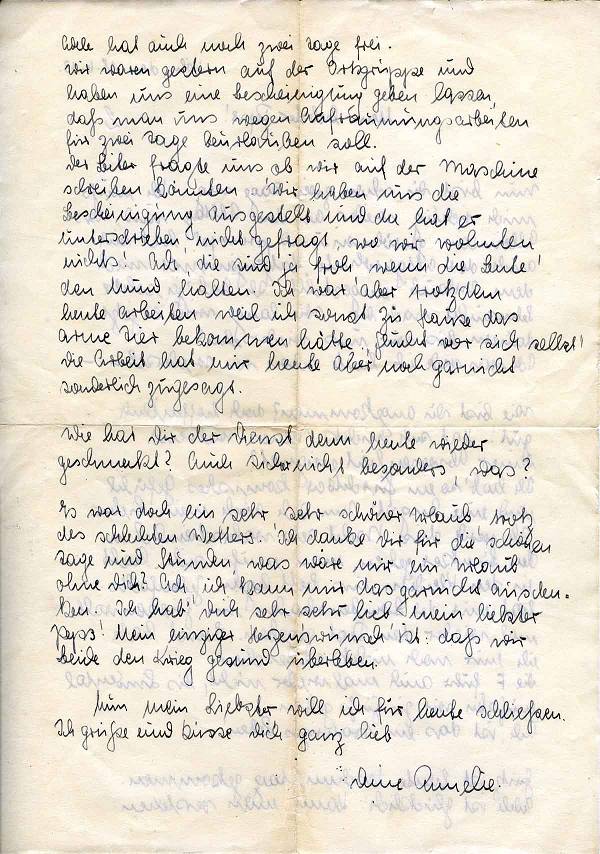 hat auch noch zwei Tage frei.
Wir waren gestern auf der Ortsgruppe und
haben uns eine Bescheinigung geben lassen,
daß man uns wegen Aufräumungsarbeiten
für zwei Tage beurlauben soll.
Der Leiter fragte uns ob wir auf der Maschine
schreiben könnten. Wir haben uns die
Bescheinigung ausgestellt und du hat er
unterschrieben nicht gefragt, wo wir wohnten
nichts! Ach, die sind ja froh wenn die Leute
den Mund halten. Ich war aber trotzdem
heute arbeiten weil ich sonst zu Hause das
arme Tier bekommen hätte, Flucht vor sich selbst!
Die Arbeit hat mir heute aber noch garnicht
sonderlich zugesagt.
Wie hat Dir der Dienst denn heute wieder
geschmeckt? Auch sicher nicht besonders, was?
Es war doch ein sehr sehr schöner Urlaub trotz
des schlechten Wetters. Ich danke Dir für die schönen
Tage und Stunden, was wäre mir ein Urlaub
ohne Dich? Ach, ich kann mir das garnicht ausden-
ken. Ich hab' Dich sehr sehr lieb mein liebster
Mein einziger Herzenswunsch ist: daß wir
beide den Krieg gesund überleben.
Nun mein Liebster will ich für heute schließen.
Ich grüße und küsse Dich ganz lieb
Deine Annelie.